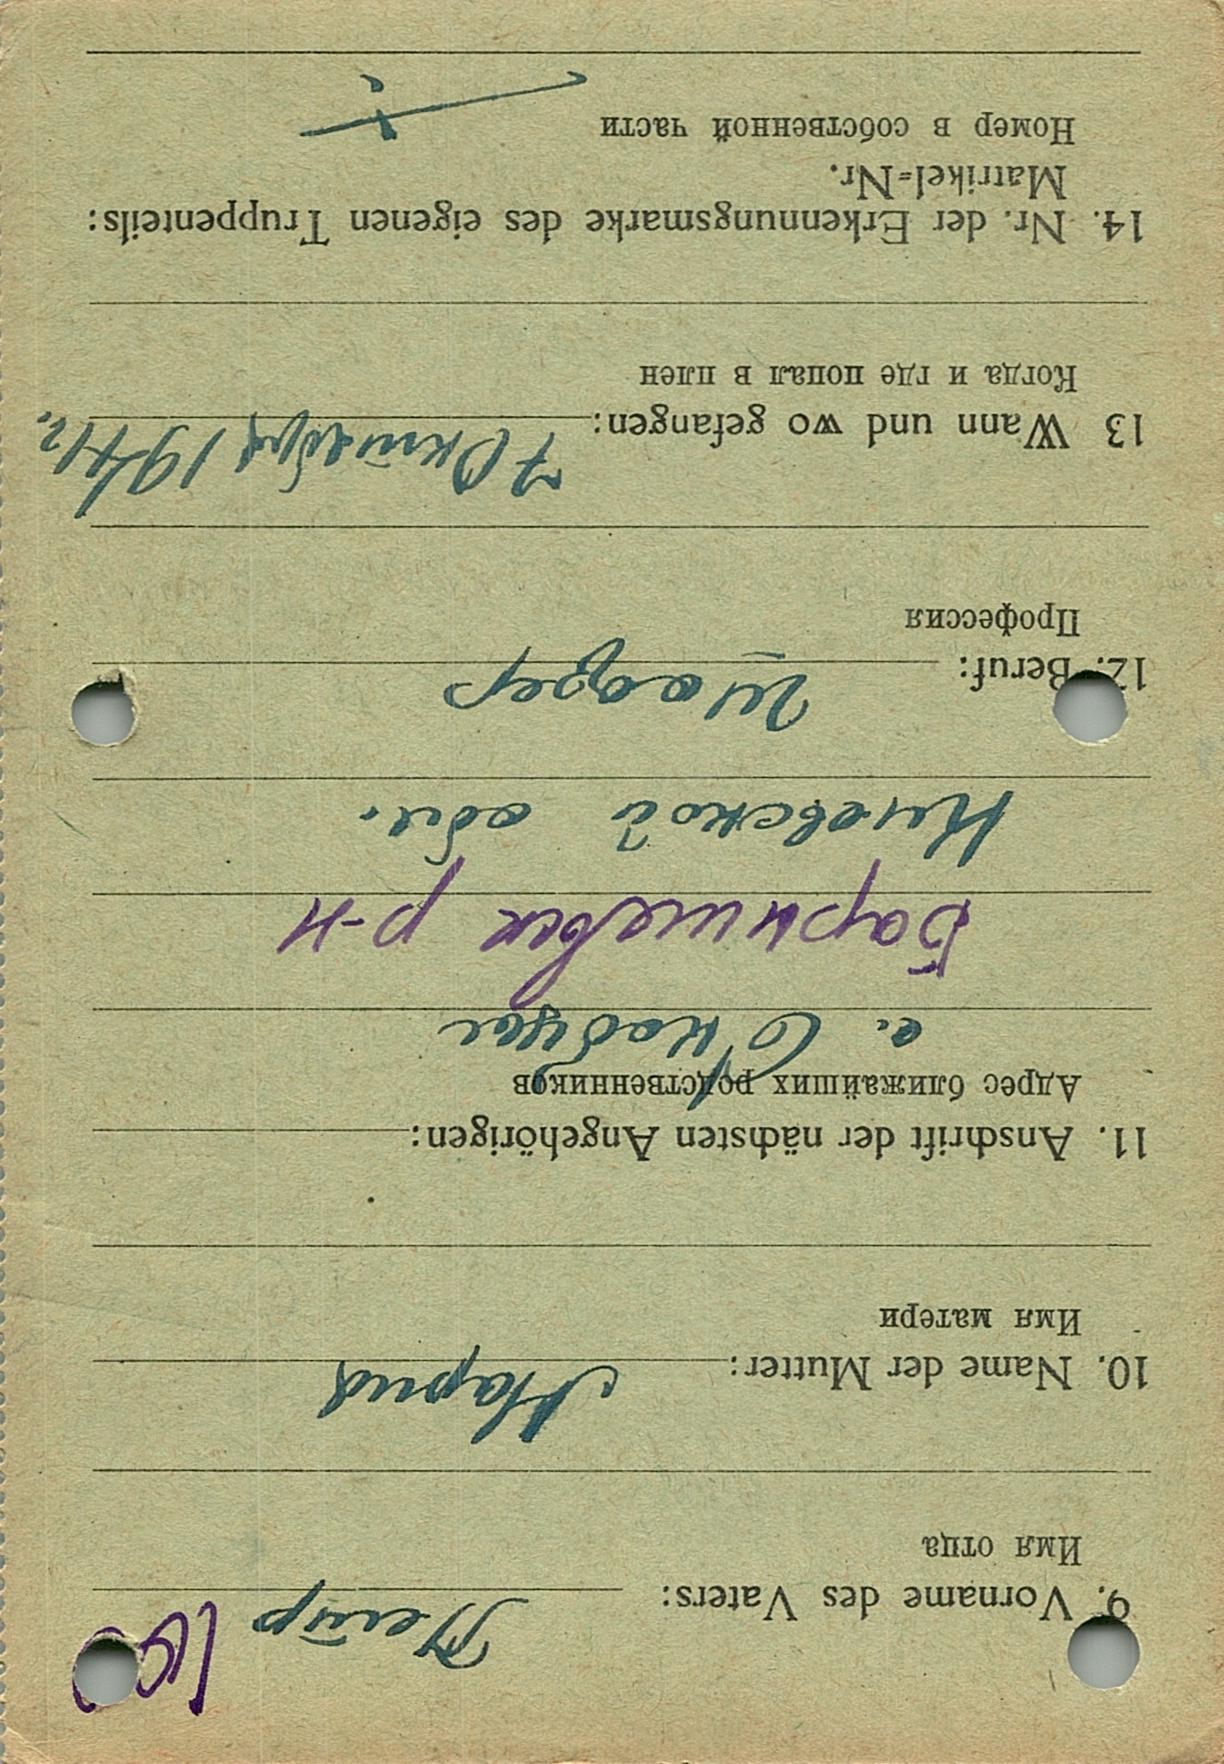 100
9. Vorname des Vaters: Петр
Имя отца
10. Name der Mutter: Мария
Имя матери
11. Anschrift der nächsten Angehörigen:
Адрес ближайших родственников
с.
Баришевск р-н
Киевской обл.
12. Beruf: Шофер
Профессия
13 Wann und wo gefangen: 7 Октября 1941 г.
Когда и где попал в плен
14. Nr. der Erkennungsmarke des eigenen Truppenteils:
Matrikel=Nr.
Номер в собственной части